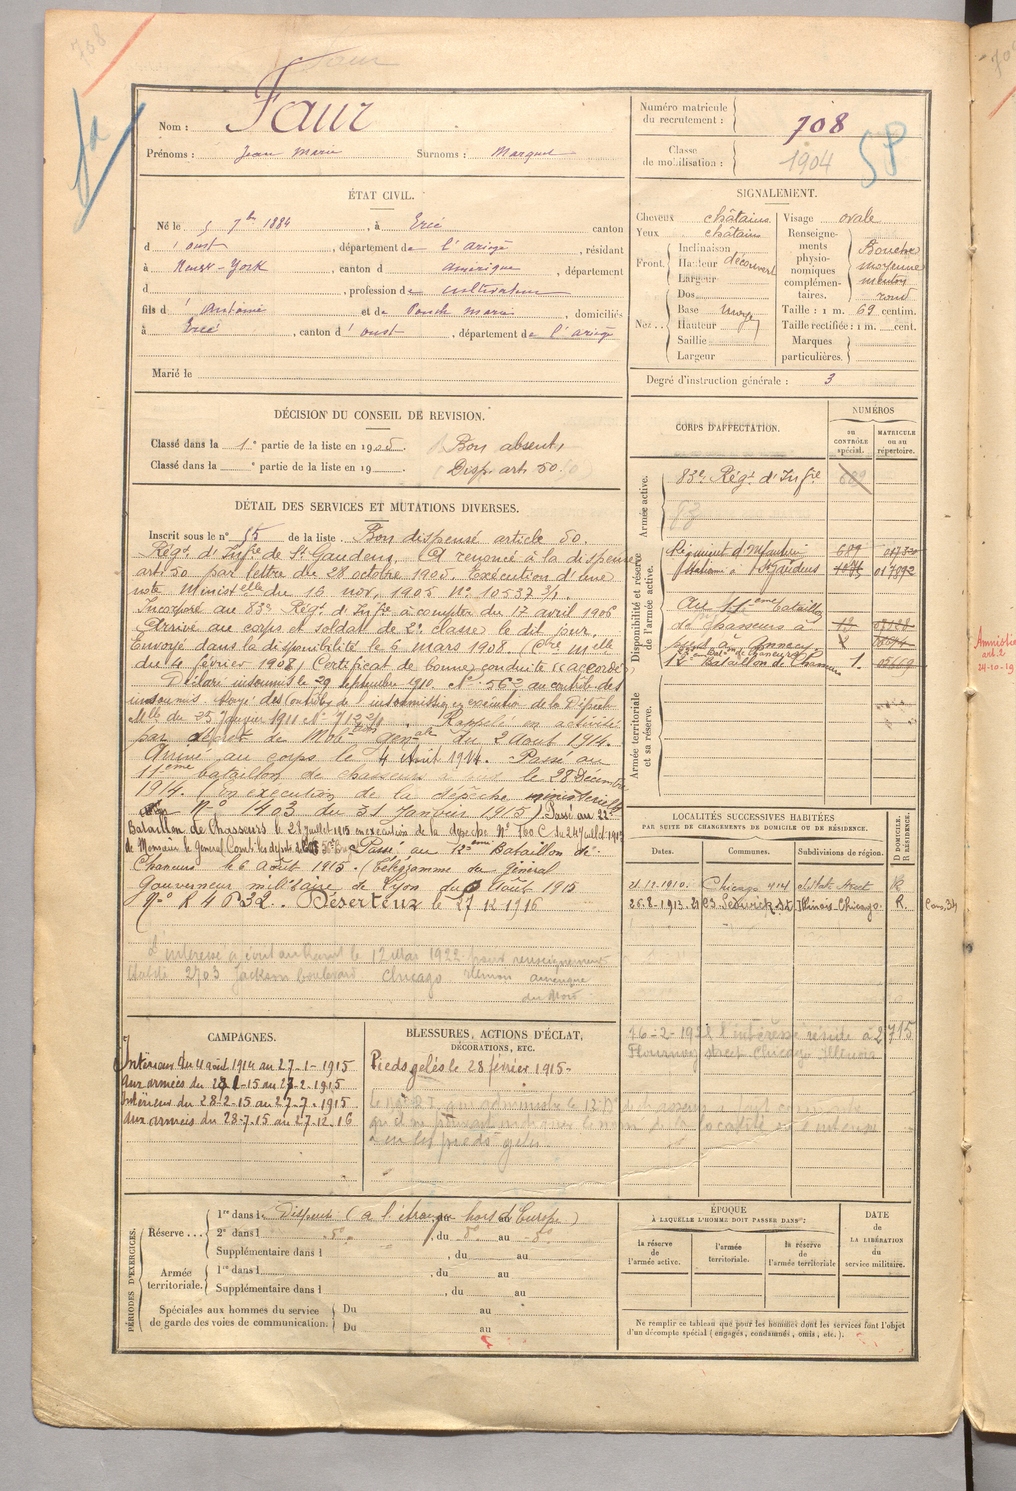 708
Nom : Faur
Prénoms : Jean Marie Surnoms : Marquet
Numéro matricule du recrutement : 708
Classe de mobilisation : 1904
58
ÉTAT CIVIL.
Né le 5 7bre 1884, à Ercé canton
d'oust, département de l'ariège, résidant
à Newst-York, canton d amérique, département
d , profession de cultivateur
fils d'Antoine et de Ponch marie, domiciliés
à Ercé, canton d'oust, département de l'ariège
Marié le
SIGNALEMENT.
Cheveux châtains Visage ovale
Yeux châtains
Front. Inclinaison
Hauteur découvert
Largeur
Nez Dos
Base moy
Hauteur
Saillie
Largeur
Renseignements physionomiques complémentaires. Bouche moyenne menton rond
Taille : 1 m. 69 centim.
Taille rectifiée : 1 m. cent.
Marques particulières.
Degré d'instruction générale : 3
DÉCISION DU CONSEIL DE REVISION.
Classé dans la 1e partie de la liste en 1905. Bon absent,
Classé dans la e partie de la liste en 19 . Disp. art. 50.
DÉTAIL DES SERVICES ET MUTATIONS DIVERSES.
Inscrit sous le n° 55 de la liste. Bon dispensé article 50.
Régt d'Infie de St Gaudens. A renoncé à la dispense
art. 50 par lettre du 28 octobre 1905. Exécution d'une
note Ministelle du 16 nov. 1905 N° 10537 3/1.
Incorporé au 83e Régt d'Infie à compter du 17 avril 1906
Arrivé au corps et soldat de 2e classe le dit jour.
Envoyé dans la disponibilité le 6 mars 1908. (Cre Mielle
du 4 février 1908) Certificat de bonne conduite "accordé"
Déclaré insoumis le 29 septembre 1910. N° 562 au contrôle des
insoumis. Rayé des contrôles de l'insoumission en exécution de la Dépêche
Mlle du 25 Janvier 1911 N° . Rappelé en activité
par décret de Mobon génale du 2 Août 1914.
Arrivé au corps le 4 Août 1914. Passé au
11ème bataillon de chasseurs à pied le 28 Décembre
1914. (En exécution de la dépêche ministérielle
N° 1403 du 31 Janvier 1915) Passé au 22e
Bataillon de Chasseurs le 28 juillet 1915 en exécution de la dépêche N° 760 C du 24 Juillet 1915
de Monsieur le Général Comt les dépôts Passé au 12ème Bataillon de
Chasseurs le 6 août 1915. (Télégramme du général
Gouverneur militaire de Lyon du Août 1915
N° R 4632. Déserteur le 27 12 1916
L'intéressé a écrit au Recrut le 12 Mai 1922 pour renseignement
Habite 2703 Jackson boulevard Chicago Illinois amérique
du Nord
CORPS D'AFFECTATION.
NUMÉROS
au contrôle spécial.
matricule ou au répertoire.
Armée active.
83e Régt d'Infie 689
83
Disponibilité et réserve de l'armée active.
Régiment d'Infanterie 689
stationné à St Gaudens
Au 11ème bataillon
de chasseurs à
pied à Annecy
12e Bataillon de Chasseurs 1.
Armée territoriale et sa réserve.
Amnistié
art. 2
24-10-19
LOCALITÉS SUCCESSIVES HABITÉES
PAR SUITE DE CHANGEMENTS DE DOMICILE OU DE RÉSIDENCE.
Dates. Communes. Subdivisions de région. D DOMICILE. R RÉSIDENCE.
21.12.1910. Chicago State Street R
26-8-1913. 2103 Sedwick St. Illinois-Chicago. R.
16-2-1921 l'intéressé réside à 2715
Flournoy street Chicago Illinois
CAMPAGNES.
Intérieur du 4 août 1914 au 27-1-1915
Aux armées du 28-1-15 au 27-2-1915
Intérieur du 28-2-15 au 27-7-1915
Aux armées du 28-7-15 au 27-12-16
BLESSURES, ACTIONS D'ÉCLAT, DÉCORATIONS, ETC.
Pieds gelés le 28 février 1915-
qui administre le 12e Bon de chasseurs a fait connaître
qu'il ne pouvait indiquer le nom de la localité où l'intéressé
a eu les pieds gelés.
PÉRIODES D'EXERCICES.
Réserve 1re dans l Dispensé (à l'étranger hors d'Europe)
2e dans l d° , du d° au d°
Supplémentaire dans l , du au
Armée territoriale. 1re dans l , du au
Supplémentaire dans l , du au
Spéciales aux hommes du service de garde des voies de communication. Du au
Du au
ÉPOQUE
À LAQUELLE L'HOMME DOIT PASSER DANS :
la réserve de l'armée active.
l'armée territoriale.
la réserve de l'armée territoriale
DATE de LA LIBÉRATION du service militaire.
Ne remplir ce tableau que pour les hommes dont les services font l'objet
d'un décompte spécial (engagés, condamnés, omis, etc.).